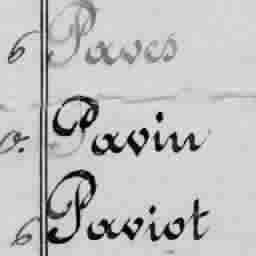 6 Paves
o. Pavin
6 Paviot